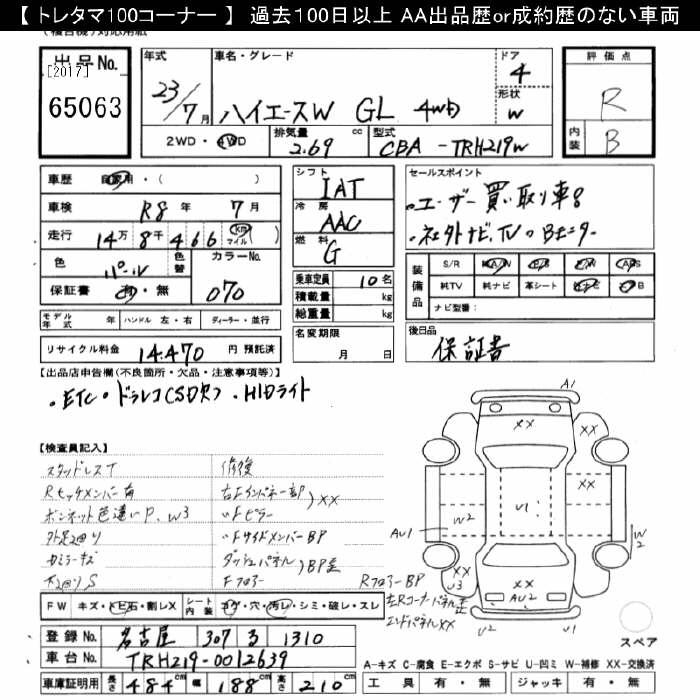 【 トレタマ100コーナー 】 過去100日以上 AA出品歴or成約歴のない車両
出品No. [2017] 65063
年式 23/7月
車名・グレード ハイエースW GL 4WD
ドア 4
形状 W
評価点 R
内装 B
2WD・4WD 排気量 2.69 cc 型式 CBA-TRH219W
車歴 自家用・( )
車検 R8年 7月
走行 14万8千466 (km マイル)
色 パール 色替 カラーNo. 070
保証書 有・無
モデル年式 年 ハンドル 左・右 ディーラー・並行
リサイクル料金 14.470 円 預託済
シフト IAT
冷房 AAC
燃料 G
乗車定員 10名
積載量 kg
総重量 kg
名変期限 月 日
セールスポイント
・ユーザー買い取り車!
・社外ナビ、TV Bモニター
装備品 S/R 純A/W P/S P/W ABS
純TV 純ナビ 革シート エアB
ナビ型番:
後日品 保証書
【出品店申告欄(不良箇所・欠品・注意事項等)】
・ETC・ドラレコ(SD欠)・HIDライト
【検査員記入】
スタッドレスT
Rセッチメンバー有
ボンネット色違いP、W3
外足廻り
カミラーキズ
下廻りS
修復
右Fインパネ一部)XX
〃Fピラー
〃FサイドメンバーBP
ダッシュパネル)BP歪
Fフロアー
RフロアーBP
左Rコーナーパネル歪
エンドパネルXX
A1
XX
XX
U1
W2
AU1
W2
XX
U3
XX
AU2
U2
U1
FW キズ・トビ石・割レX シート内装 コゲ・穴・汚レ・シミ・破レ・スレ
登録No. 名古屋 307 る 1310
車台No. TRH219-0012639
車庫証明用 長さ 484cm 幅 188cm 高さ 210cm
スペア
A-キズ C-腐食 E-エクボ S-サビ U-凹ミ W-補修 XX-交換済
工具 有・無 ジャッキ 有・無